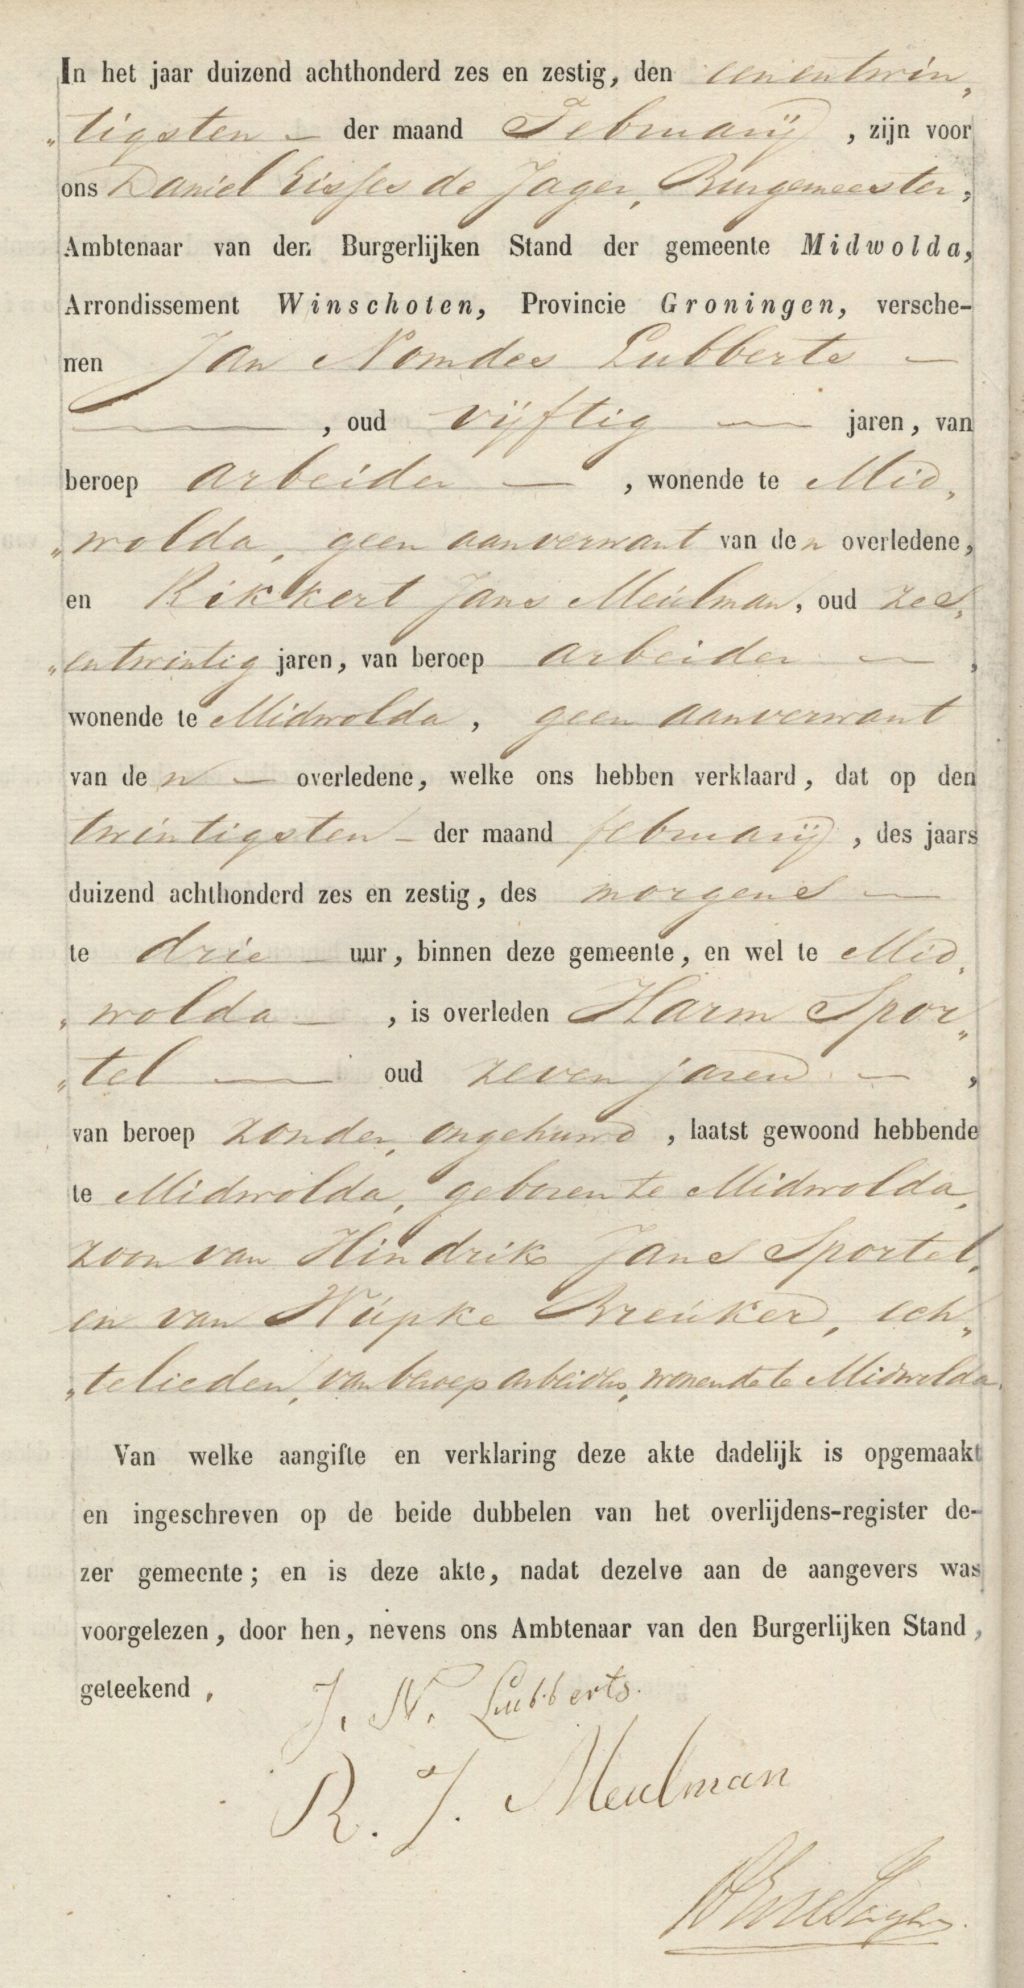 In het jaar duizend achthonderd zes en zestig, den eenentwin„
„tigsten — der maand Februarij, zijn voor
ons Daniel Eisses de Jager, Burgemeester,
Ambtenaar van den Burgerlijken Stand der gemeente Midwolda,
Arrondissement Winschoten, Provincie Groningen, versche-
nen Jan Nomdes Lubberts —
—, oud vijftig — jaren, van
beroep arbeider —, wonende te Mid„
„wolda, geen aanverwant van den overledene,
en Rikkert Jans Meulman, oud zes„
„entwintig jaren, van beroep arbeider —,
wonende te Midwolda, geen aanverwant
van den — overledene, welke ons hebben verklaard, dat op den
twintigsten — der maand februarij, des jaars
duizend achthonderd zes en zestig, des morgens —
te drie — uur, binnen deze gemeente, en wel te Mid„
„wolda —, is overleden Harm Spor„
„tel — oud zeven jaren —,
van beroep zonder, ongehuwd, laatst gewoond hebbende
te Midwolda, geboren te Midwolda,
zoon van Hindrik Jans Sportel,
en van Wupke Breuker, ech„
„telieden, van beroep arbeiders, wonende te Midwolda.
Van welke aangifte en verklaring deze akte dadelijk is opgemaakt
en ingeschreven op de beide dubbelen van het overlijdens-register de-
zer gemeente; en is deze akte, nadat dezelve aan de aangevers was
voorgelezen, door hen, nevens ons Ambtenaar van den Burgerlijken Stand,
geteekend.
J. N. Lubberts.
R. J. Meulman
DE de Jager.